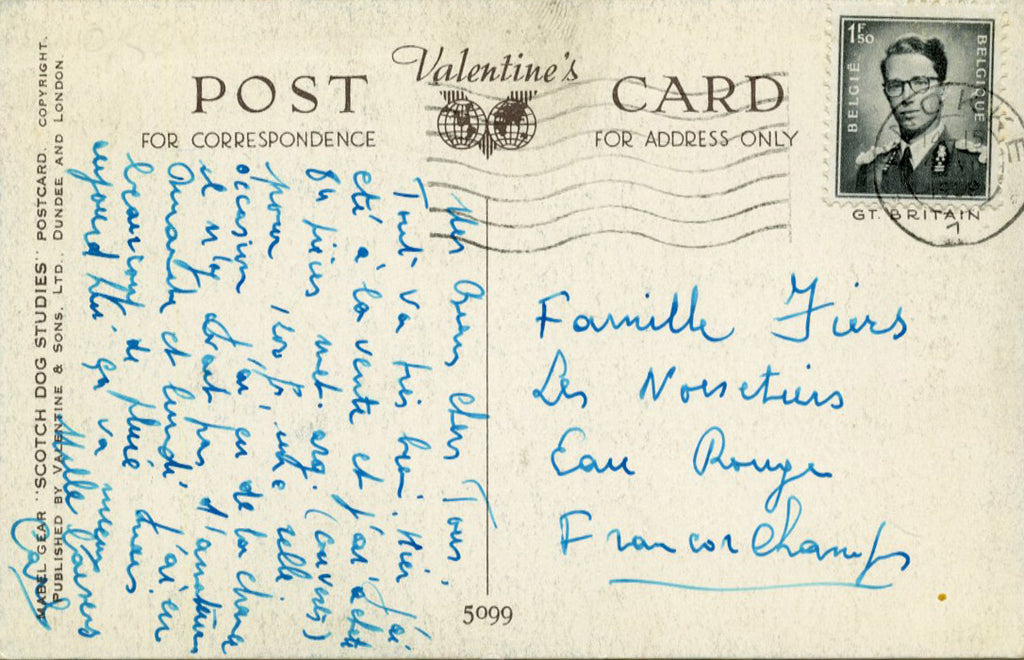 Valentine's
POST CARD
FOR CORRESPONDENCE
FOR ADDRESS ONLY
BELGIË
1F50
BELGIQUE
GT. BRITAIN
1
Mes Biens Chers Tous,
Tout va très bien. Hier j'ai
été à la vente et j'ai acheté
pièces met. arg. (couverts)
pour une belle
occasion j'ai eu de la chance
il n'y avait pas d'amateurs
Dimanche et lundi j'ai eu
beaucoup de pluie mais
aujourd'hui ça va mieux
Mille baisers
Famille Fiers
Les Noisetiers
Eau Rouge
Francorchamps
5099
MABEL GEAR "SCOTCH DOG STUDIES" POSTCARD. COPYRIGHT.
PUBLISHED BY VALENTINE & SONS, LTD., DUNDEE AND LONDON